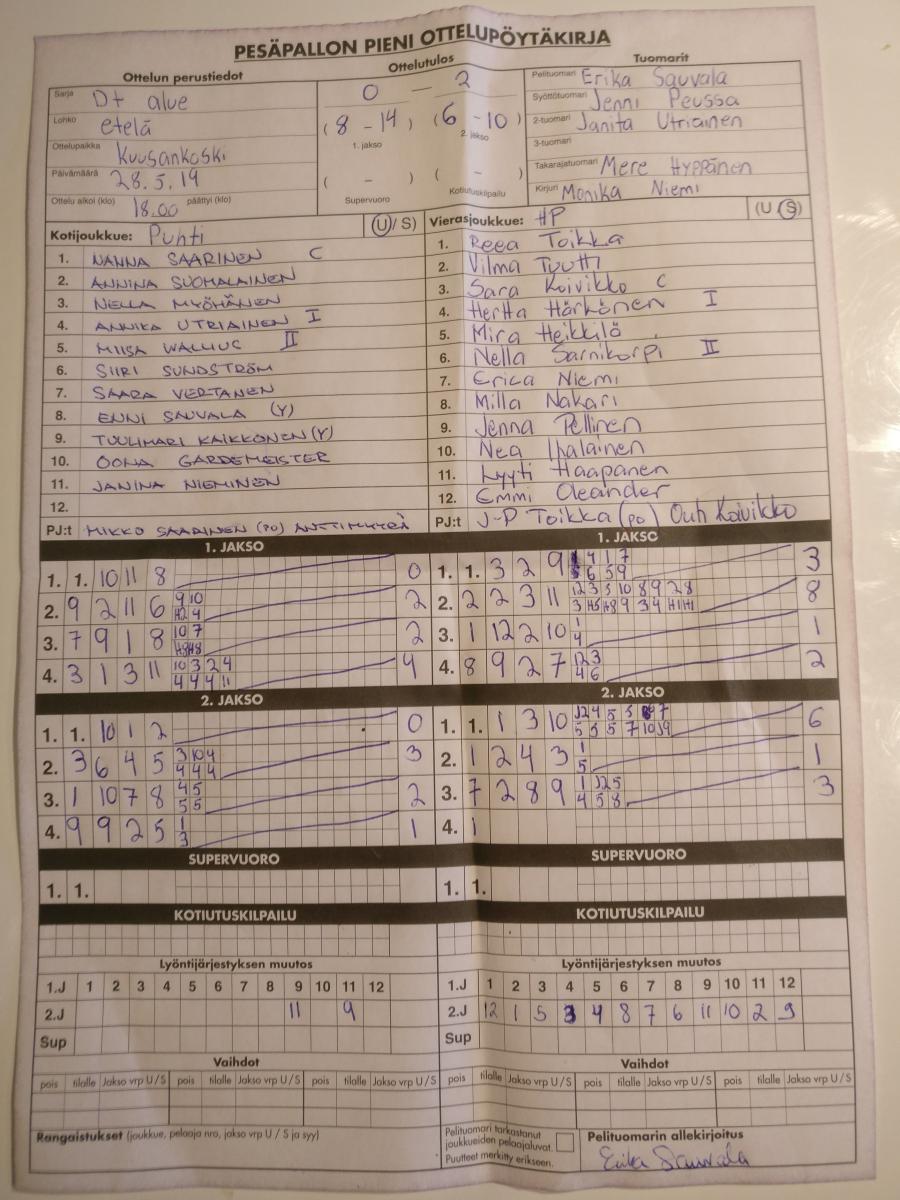 PESÄPALLON PIENI OTTELUPÖYTÄKIRJA
Ottelun perustiedot
Sarja D+ alue
Lohko etelä
Ottelupaikka Kuusankoski
Päivämäärä 28.5.19
Ottelu alkoi (klo) 18.00 päättyi (klo)
Ottelutulos
0 - 2
(8 - 14) (6 - 10)
1. jakso 2. jakso
( - ) ( - )
Supervuoro Kotiutuskilpailu
Tuomarit
Pelituomari Erika Sauvala
Syöttötuomari Jenni Peussa
2-tuomari Janita Utriainen
3-tuomari
Takarajatuomari Mere Hyppänen
Kirjuri Monika Niemi
Kotijoukkue: Puhti (U/S)
1. NANNA SAARINEN C
2. ANNINA SUOMALAINEN
3. NELLA MYÖHÄNEN
4. ANNIKA UTRIAINEN I
5. MIISA WALLIUS II
6. SIIRI SUNDSTRÖM
7. SAARA VERTANEN
8. ENNI SAUVALA (Y)
9. TUULIMARI KAIKKONEN (Y)
10. OONA GARDEMEISTER
11. JANINA NIEMINEN
12.
PJ:t MIKKO SAARINEN (PO)
Vierasjoukkue: HP (U S)
1. Reea Toikka
2. Vilma Tuutti
3. Sara Koivikko C
4. Hertta Härkönen I
5. Mira Heikkilä
6. Nella Sarnikorpi II
7. Erica Niemi
8. Milla Nakari
9. Jenna Pellinen
10. Nea Ihalainen
11. Lyyti Haapanen
12. Emmi Oleander
PJ:t J-P Toikka (po) Outi Koivikko
1. JAKSO
1. 1. 10 11 8 0
2. 9 2 11 6 9 10 2
3. 7 9 1 8 10 7 2
4. 3 1 3 11 10 3 2 4 4
4 4 4 11
2. JAKSO
1. 1. 10 1 2 0
2. 3 6 4 5 3 10 4 3
4 4 4
3. 1 10 7 8 4 5 2
5 5
4. 9 9 2 5 1 1
3
SUPERVUORO
1. 1.
KOTIUTUSKILPAILU
Lyöntijärjestyksen muutos
1.J 1 2 3 4 5 6 7 8 9 10 11 12
2.J 11 9
Sup
Vaihdot
pois tilalle Jakso vrp U/S pois tilalle Jakso vrp U/S pois tilalle Jakso vrp U/S
1. JAKSO
1. 1. 3 2 9 4 1 7 3
6 5 9
2. 2 2 3 11 12 3 5 10 8 9 2 8 8
3. 1 12 2 10 1 1
4
4. 8 9 2 7 12 3 2
4 6
2. JAKSO
1. 1. 1 3 10 12 4 5 5 7 6
5 5 5 7 10
2. 1 2 4 3 1 1
5
3. 7 2 8 9 1 12 5 3
4 5 8
4. 1
SUPERVUORO
1. 1.
KOTIUTUSKILPAILU
Lyöntijärjestyksen muutos
1.J 1 2 3 4 5 6 7 8 9 10 11 12
2.J 12 1 5 3 4 8 7 6 11 10 2 9
Sup
Vaihdot
pois tilalle Jakso vrp U/S pois tilalle Jakso vrp U/S pois tilalle Jakso vrp U/S
Rangaistukset (joukkue, pelaaja nro, jakso vrp U / S ja syy)
Pelituomari tarkastanut
joukkueiden pelaajaluvat.
Puutteet merkitty erikseen.
Pelituomarin allekirjoitus
Erika Sauvala